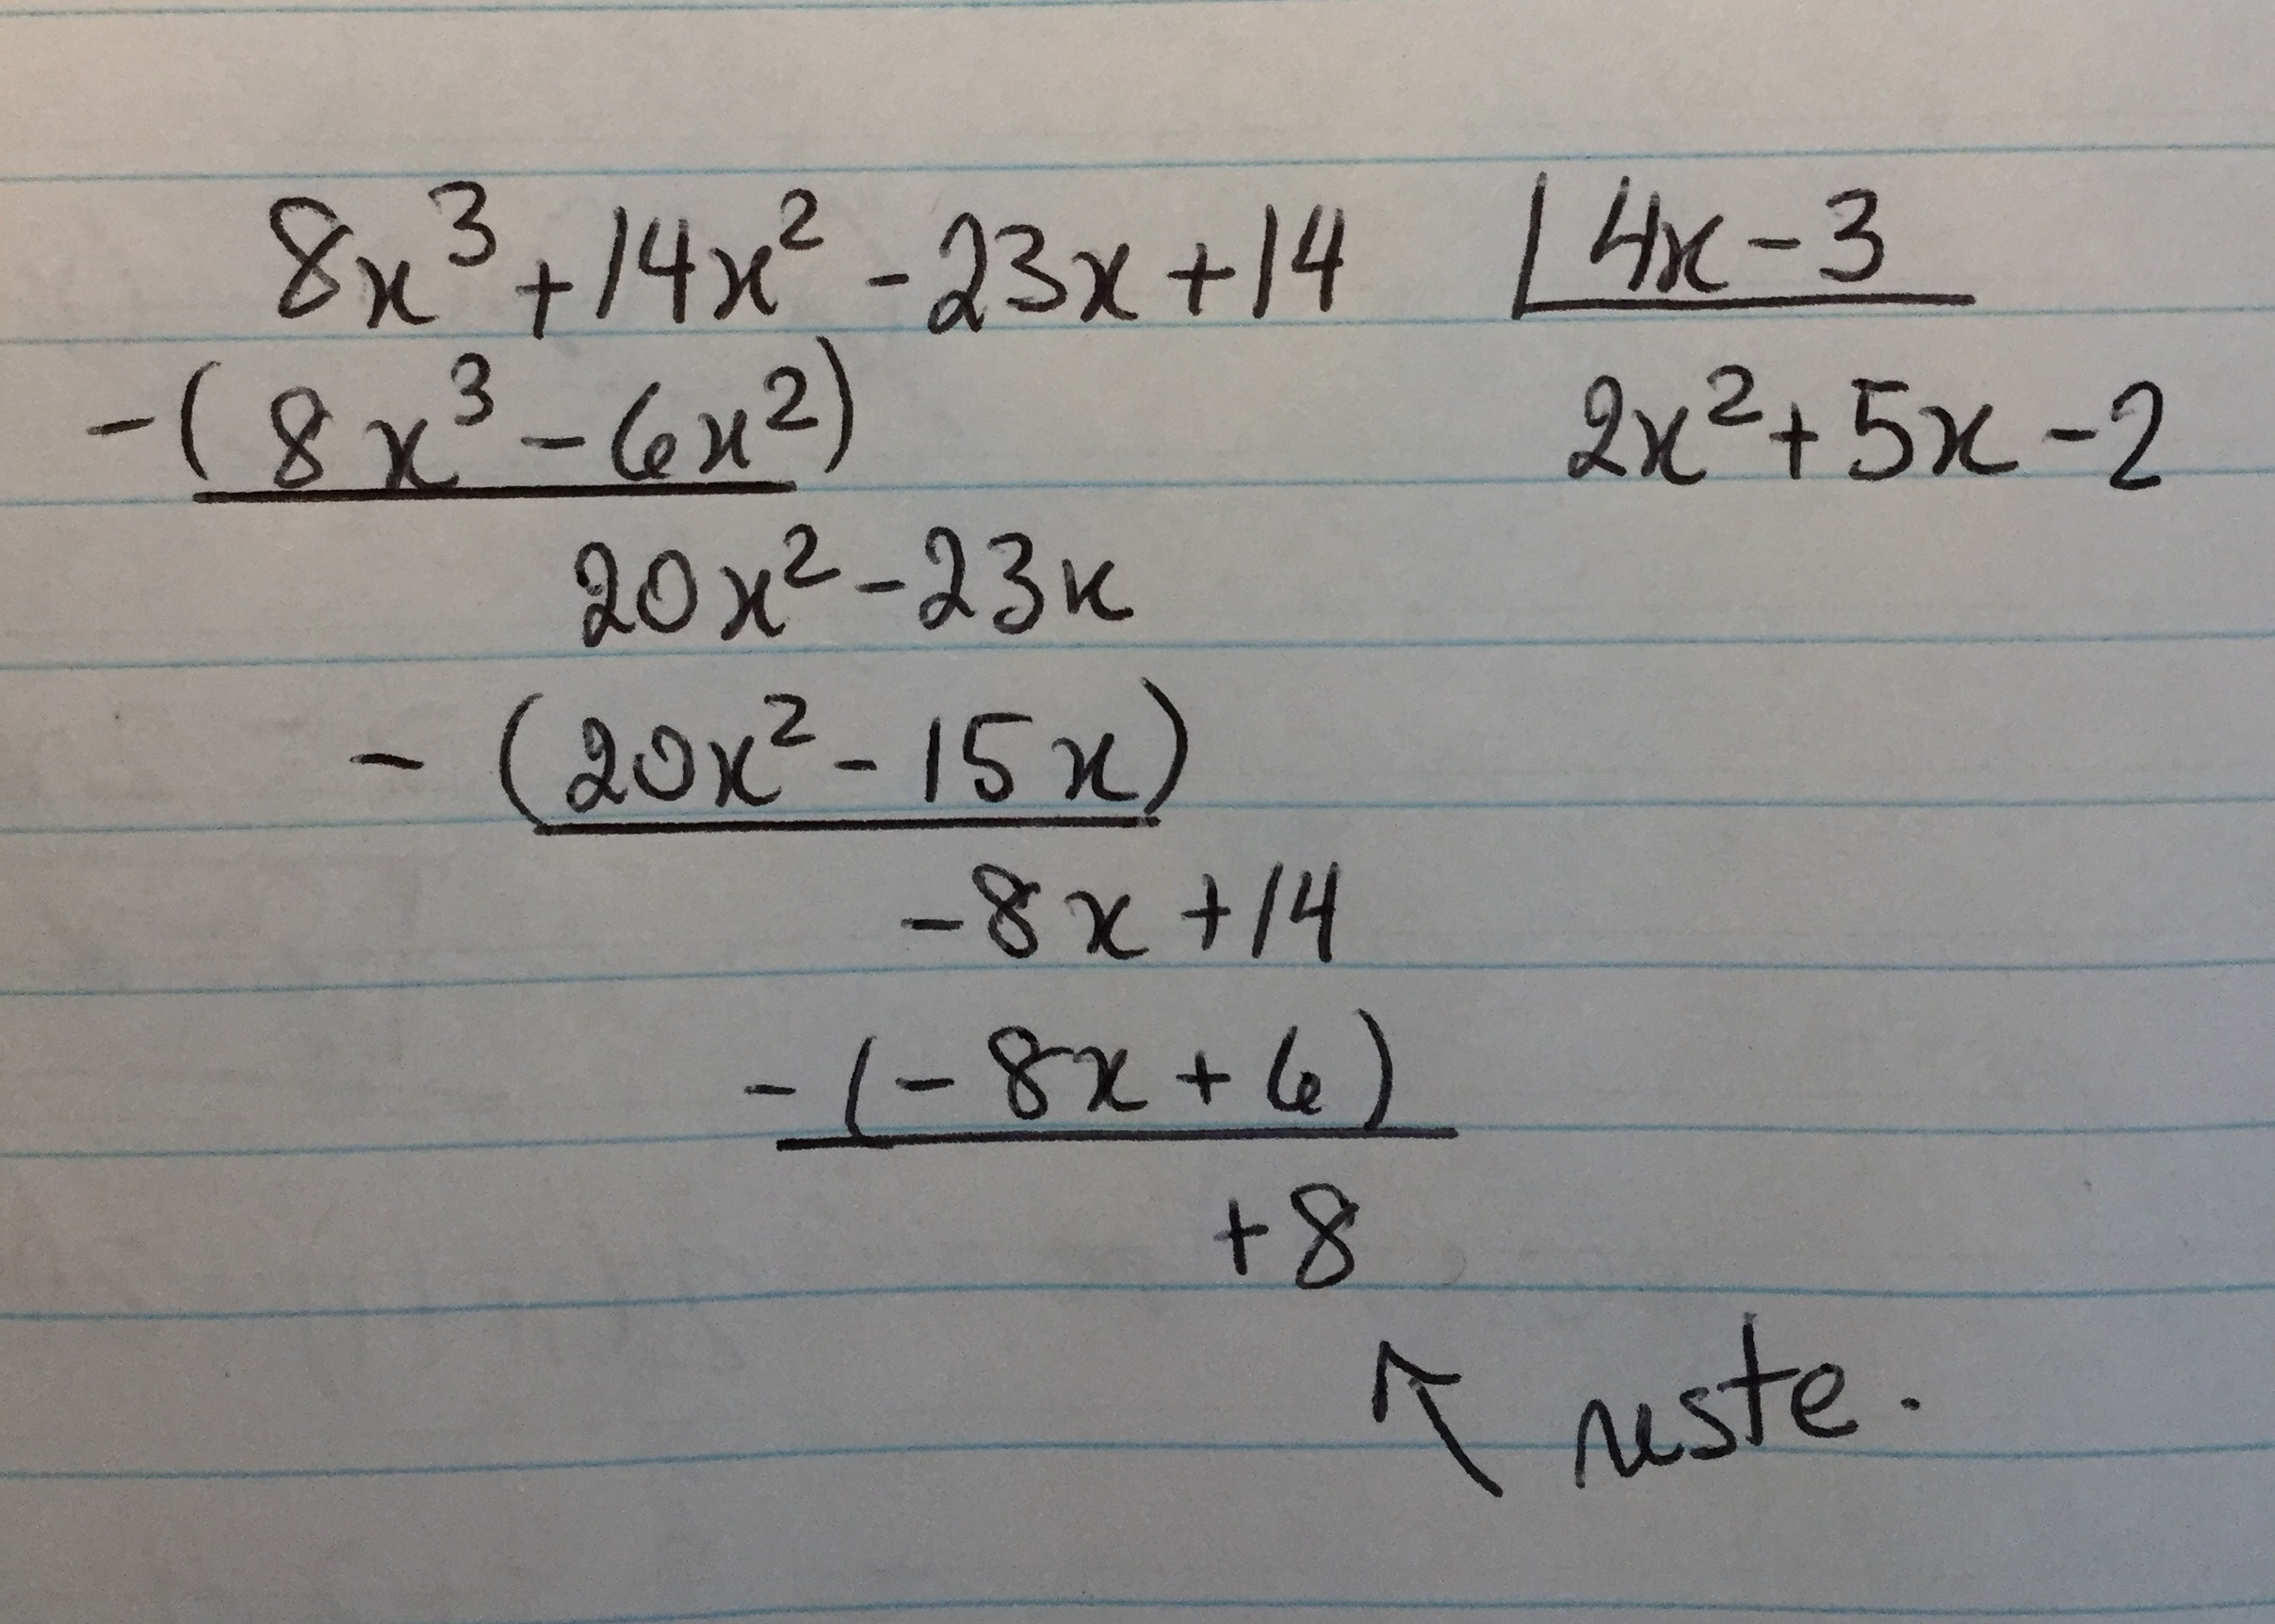 8x³ + 14x² - 23x + 14 | 4x - 3
-(8x³ - 6x²) 2x² + 5x - 2
20x² - 23x
- (20x² - 15x)
-8x + 14
- (-8x + 6)
+8
↖ reste.